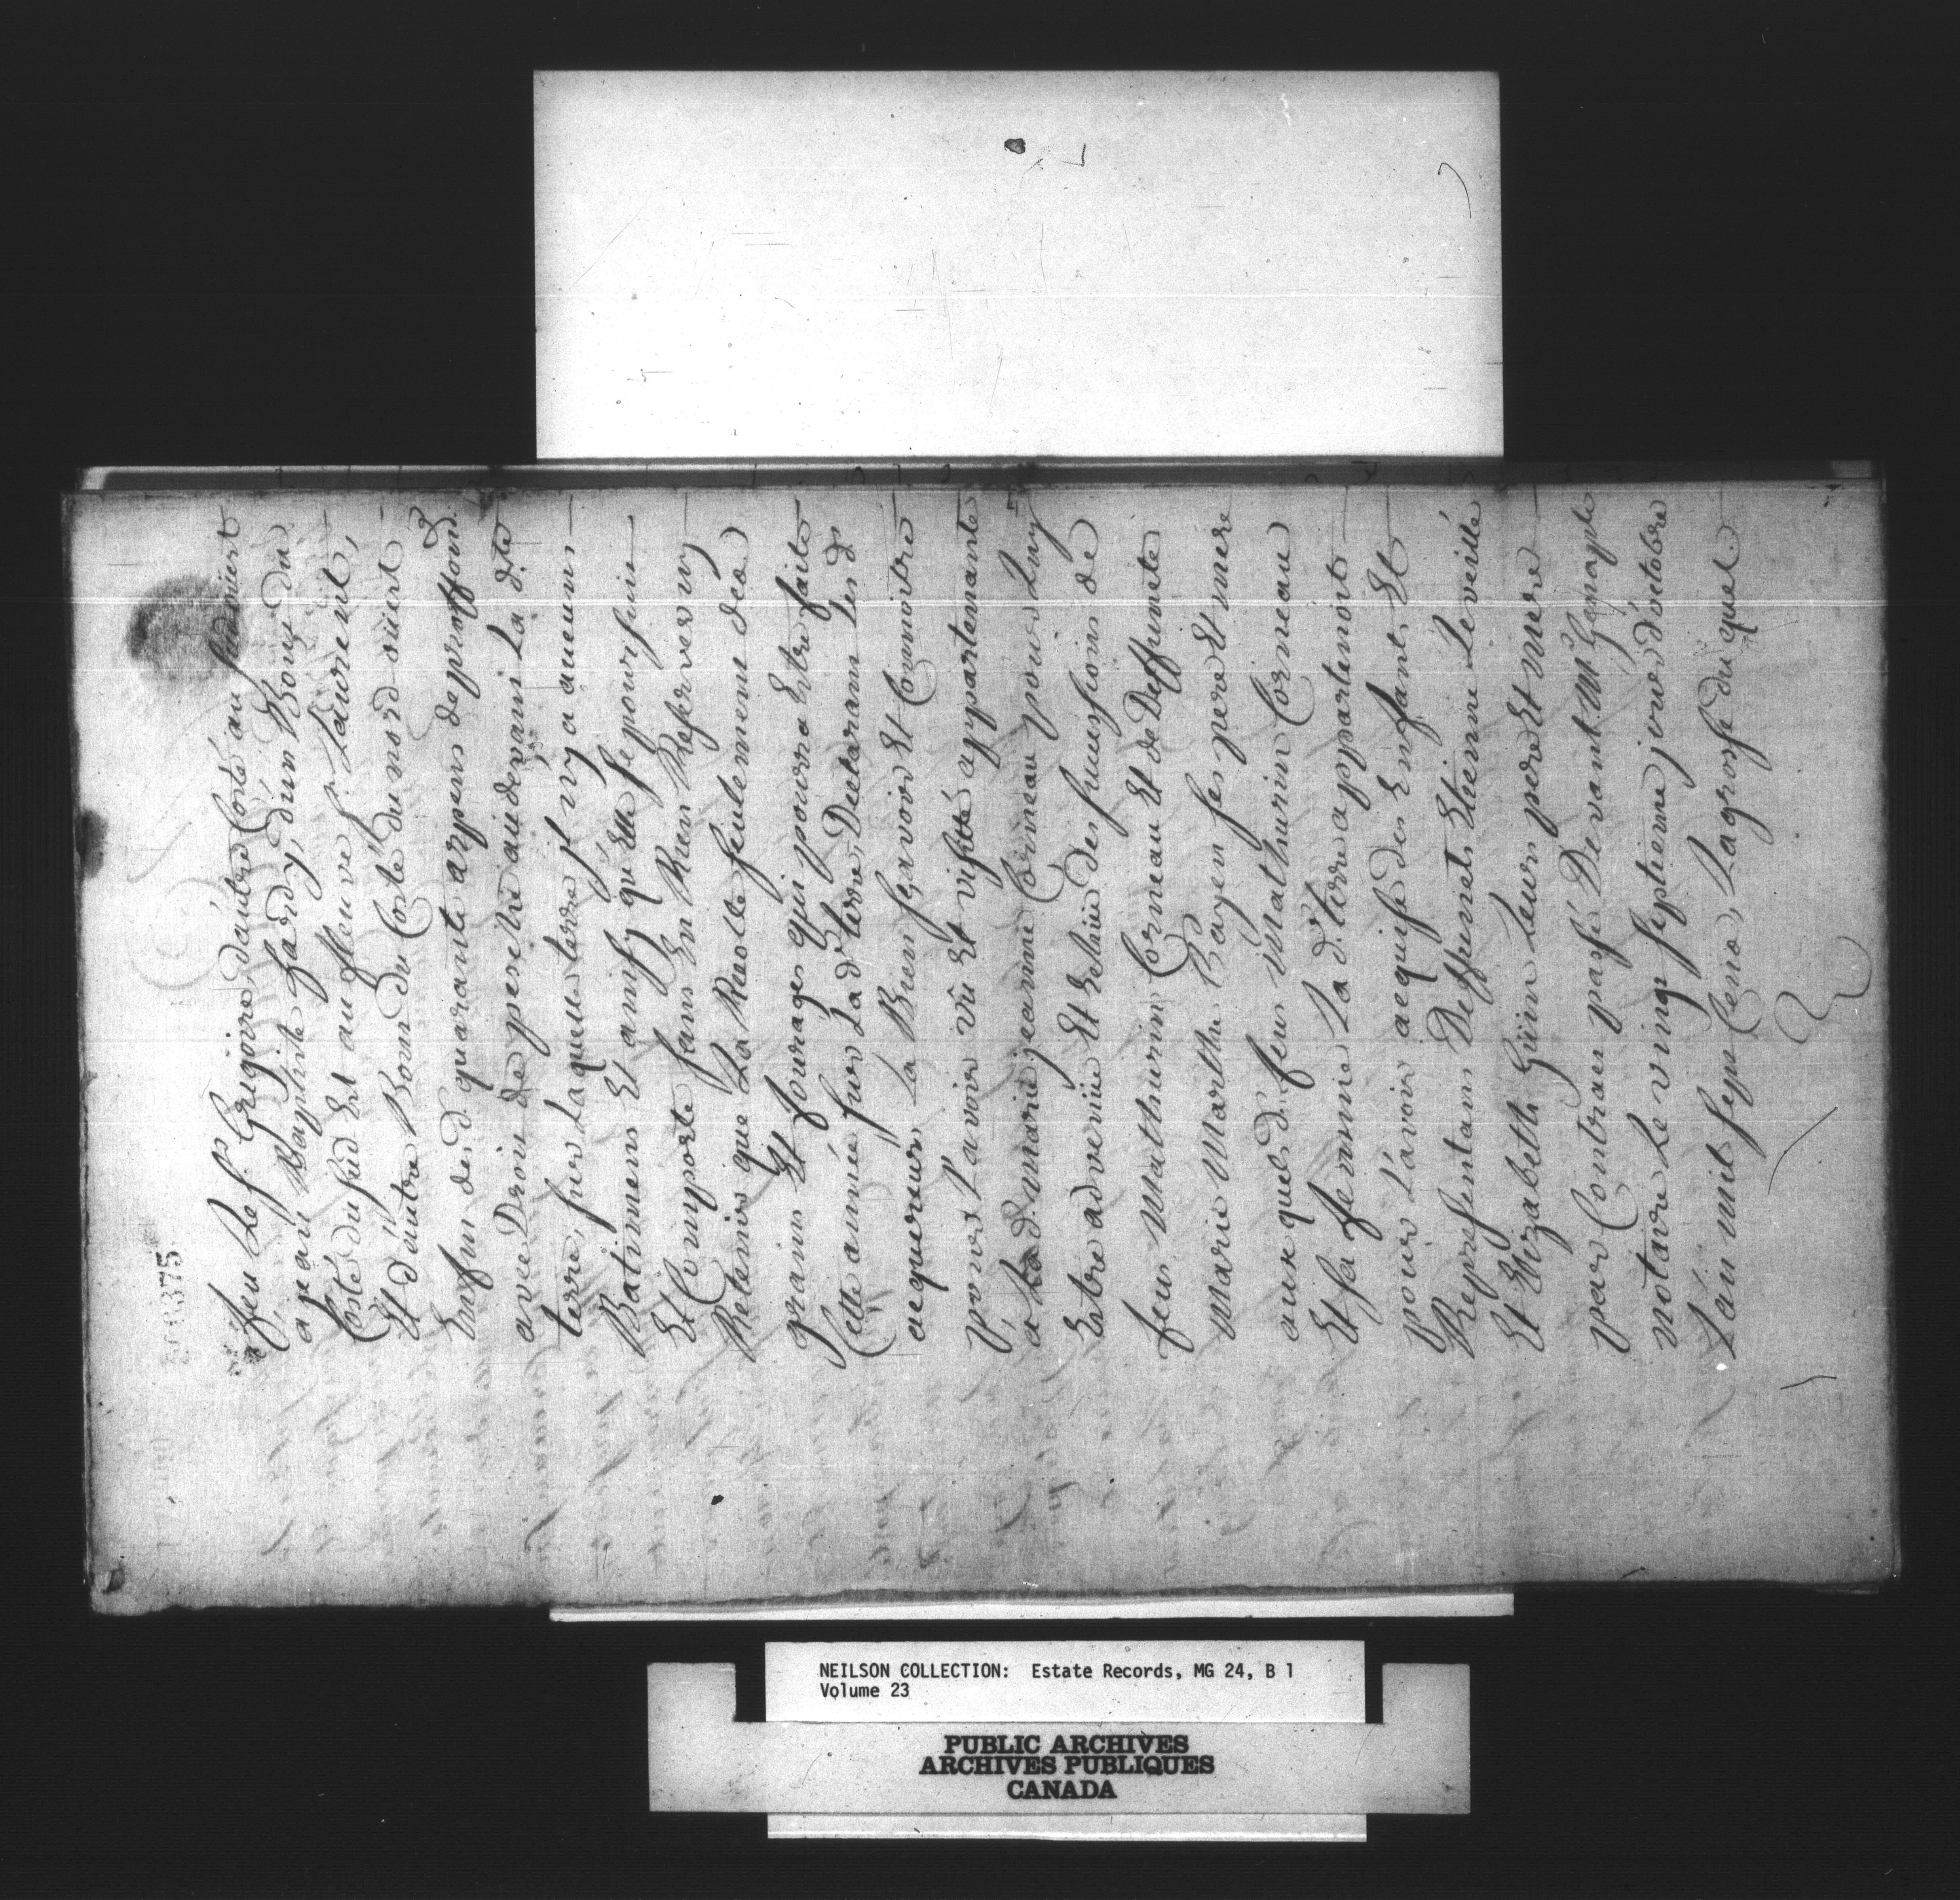 000375
feu Le Sr. Gregoire d'autre Costé au sud oüiest
a jean Baptiste hardy, d'un Bout du
Costé du sud Est au fleuve St. Laurent,
Et d'autre Bout du Costé du nord oüiest
Enfin desd. quarante arpens de proffond.
avec Droit de pesche au devant La d.te
terre, sur Laquelle terre jl n'y a aucuns
Batimens Et ainsy qu'elle se poursuit
Et Comporte sans En Rien Reserver ny
Retenir que La Recolte seulement des
grains Et fourages qui pourra Estre faite
Cette année sur Lad. terre, Declarant Lesds
acquereurs La Bien sçavoir Et Connoitre
pour L'avoir vû Et visitté appartenante
a Lad. marie jeanne Corneau pour Luy
Estre advenüe Et Eschüe des successions de
feus Mathurin Corneau Et de Deffunte
Marie Marthe Bayen ses pere Et mere
aux quels d. feus Mathurin Corneau
Et sa femme La d. terre appartenoit
pour L'avoir acquise des Enfants Et
Representans Deffunts Etienne Leveillé
Et Elizabeth Guïn Leurs pere Et mere
par Contrat passé Devant Me Genaple
notaire Le vingt septieme jour d'octobre
L'an mil sept Cens, La grosse du quel
NEILSON COLLECTION: Estate Records, MG 24, B 1
Volume 23
PUBLIC ARCHIVES
ARCHIVES PUBLIQUES
CANADA